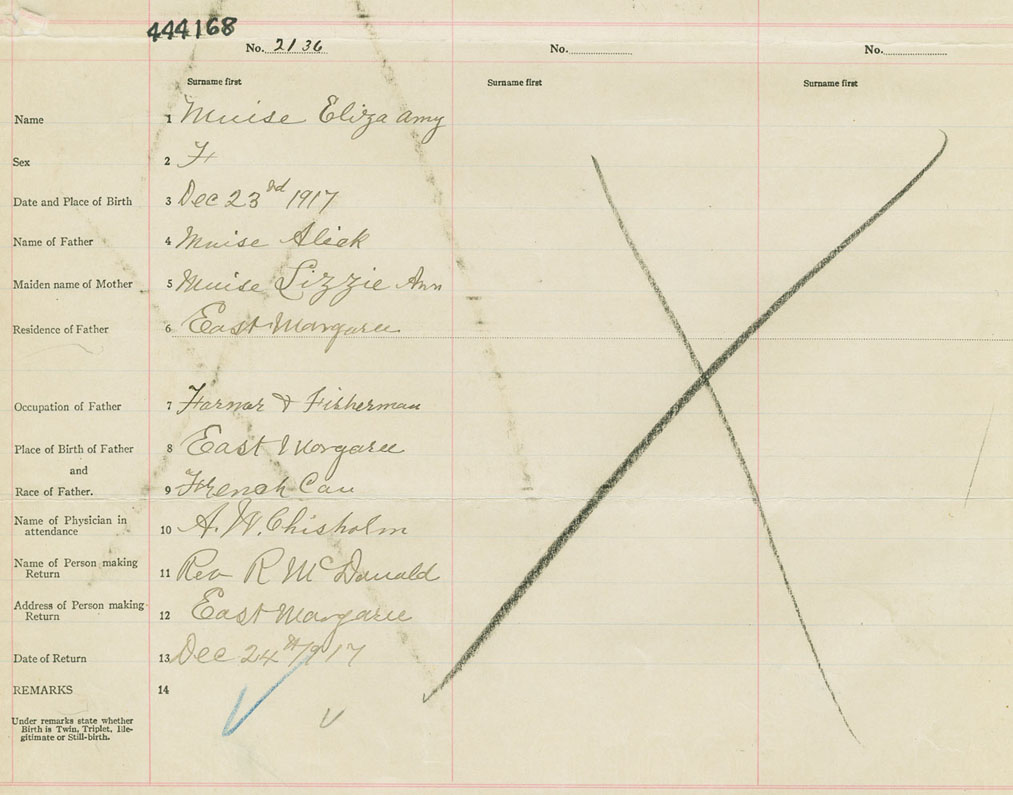 444168
No. 2136 No. No.
Surname first Surname first Surname first
Name 1 Muise Eliza Amy
Sex 2 F
Date and Place of Birth 3 Dec 23rd 1917
Name of Father 4 Muise Alick
Maiden name of Mother 5 Muise Lizzie Ann
Residence of Father 6 East Margaree
Occupation of Father 7 Farmar & Fisherman
Place of Birth of Father 8 East Margaree
and
Race of Father. 9 French Can
Name of Physician in
attendance 10 A. W. Chisholm
Name of Person making
Return 11 Rev R McDonald
Address of Person making
Return 12 East Margaree
Date of Return 13 Dec 24th 1917
REMARKS 14
Under remarks state whether
Birth is Twin, Triplet, Ille-
gitimate or Still-birth.